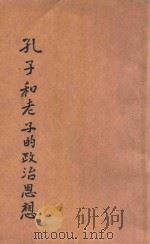 孔子和老子的政治思想
mtoou.info